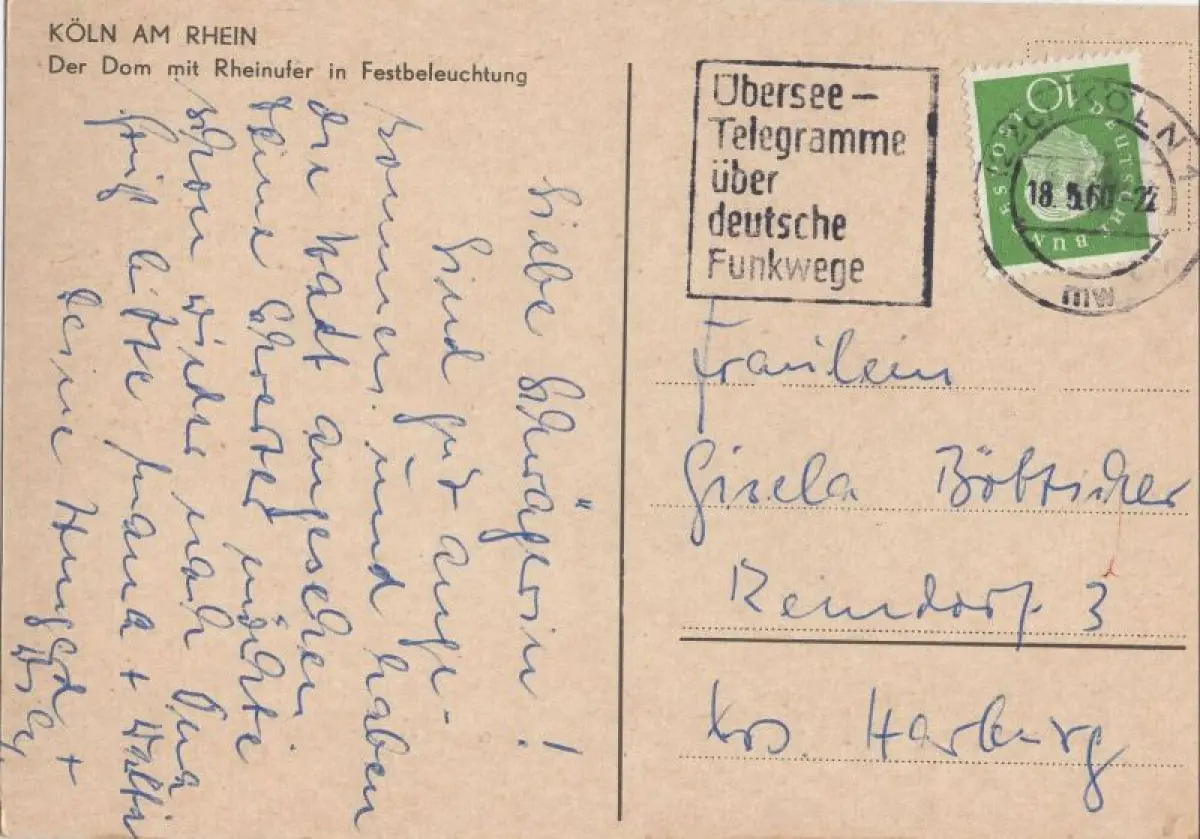 KÖLN AM RHEIN
Der Dom mit Rheinufer in Festbeleuchtung
Liebe Schwägerin!
Sind gut ange-
kommen und haben
die Stadt angesehen
Deine Schwester möchte
schon wieder nach
Grüß bitte Mama +
Deine +
Übersee-
Telegramme
über
deutsche
Funkwege
10
DEUTSCHE BUNDESPOST
KÖLN 1
18. 5.60-22
mw
Fräulein
Gisela Böttcher
3
Krs. Harburg